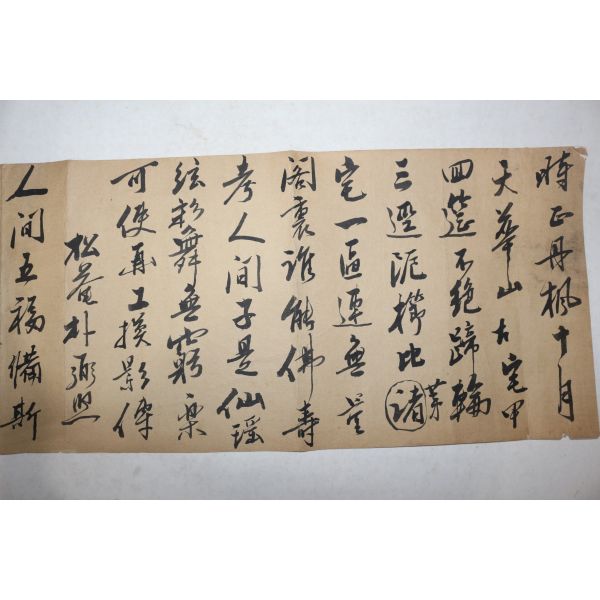 時正丹楓十月
天華山古宅甲
四筵不絶蹄輪
三逕泥櫛比諸茅
宅一區連無量
閣裏誰能佛壽
考人間子是仙瑤
絃彩舞無窮樂
可使画工摸影傳
松菴朴
人間五福備斯